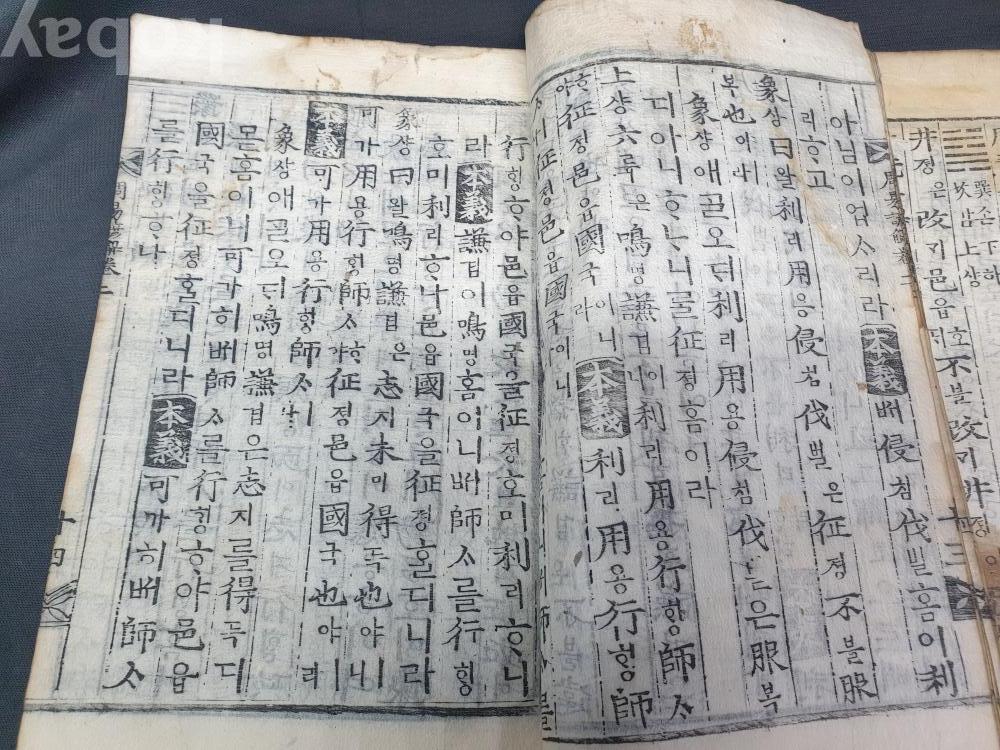 巽손下하
坎감上상
井졍은改ᄀᆡ邑읍호ᄃᆡ不블改ᄀᆡ井졍
周易諺解卷二 十三
아님이업스리라本義ᄡᅥ侵침伐벌홈이利
리ᄒᆞ고
象샹曰왈利리用용侵침伐벌은征졍不블服
복也야ㅣ라
象샹애ᄀᆞᆯ오ᄃᆡ利리用용侵침伐벌은服복
디아니ᄒᆞᄂᆞ니ᄅᆞᆯ征졍홈이라
上샹六륙은鳴명謙겸이니利리用용行ᄒᆡᆼ師ᄉᆞ
ᄒᆞ야征졍邑읍國국이니라本義利리用용行ᄒᆡᆼ師
ᄉᆞㅣ나征졍邑읍國국이니
行ᄒᆡᆼᄒᆞ야邑읍國국을征졍호미利리ᄒᆞ니
라本義謙겸이鳴명홈이니ᄡᅥ師ᄉᆞ를行ᄒᆡᆼ
호미利리ᄒᆞ나邑읍國국을征졍홀디니라
象샹曰왈鳴명謙겸은志지未미得득也야ㅣ니
可가用용行ᄒᆡᆼ師ᄉᆞᄒᆞ야征졍邑읍國국也야ㅣ라
本義可가用용行ᄒᆡᆼ師ᄉᆞㅣ나
象샹애ᄀᆞᆯ오ᄃᆡ鳴명謙겸은志지를得득디
몯홈이니可가히ᄡᅥ師ᄉᆞ를行ᄒᆡᆼᄒᆞ야邑읍
國국을征졍홀디니라本義可가히ᄡᅥ師ᄉᆞ
를行ᄒᆡᆼᄒᆞ나
周易諺解卷二 十四
kobay